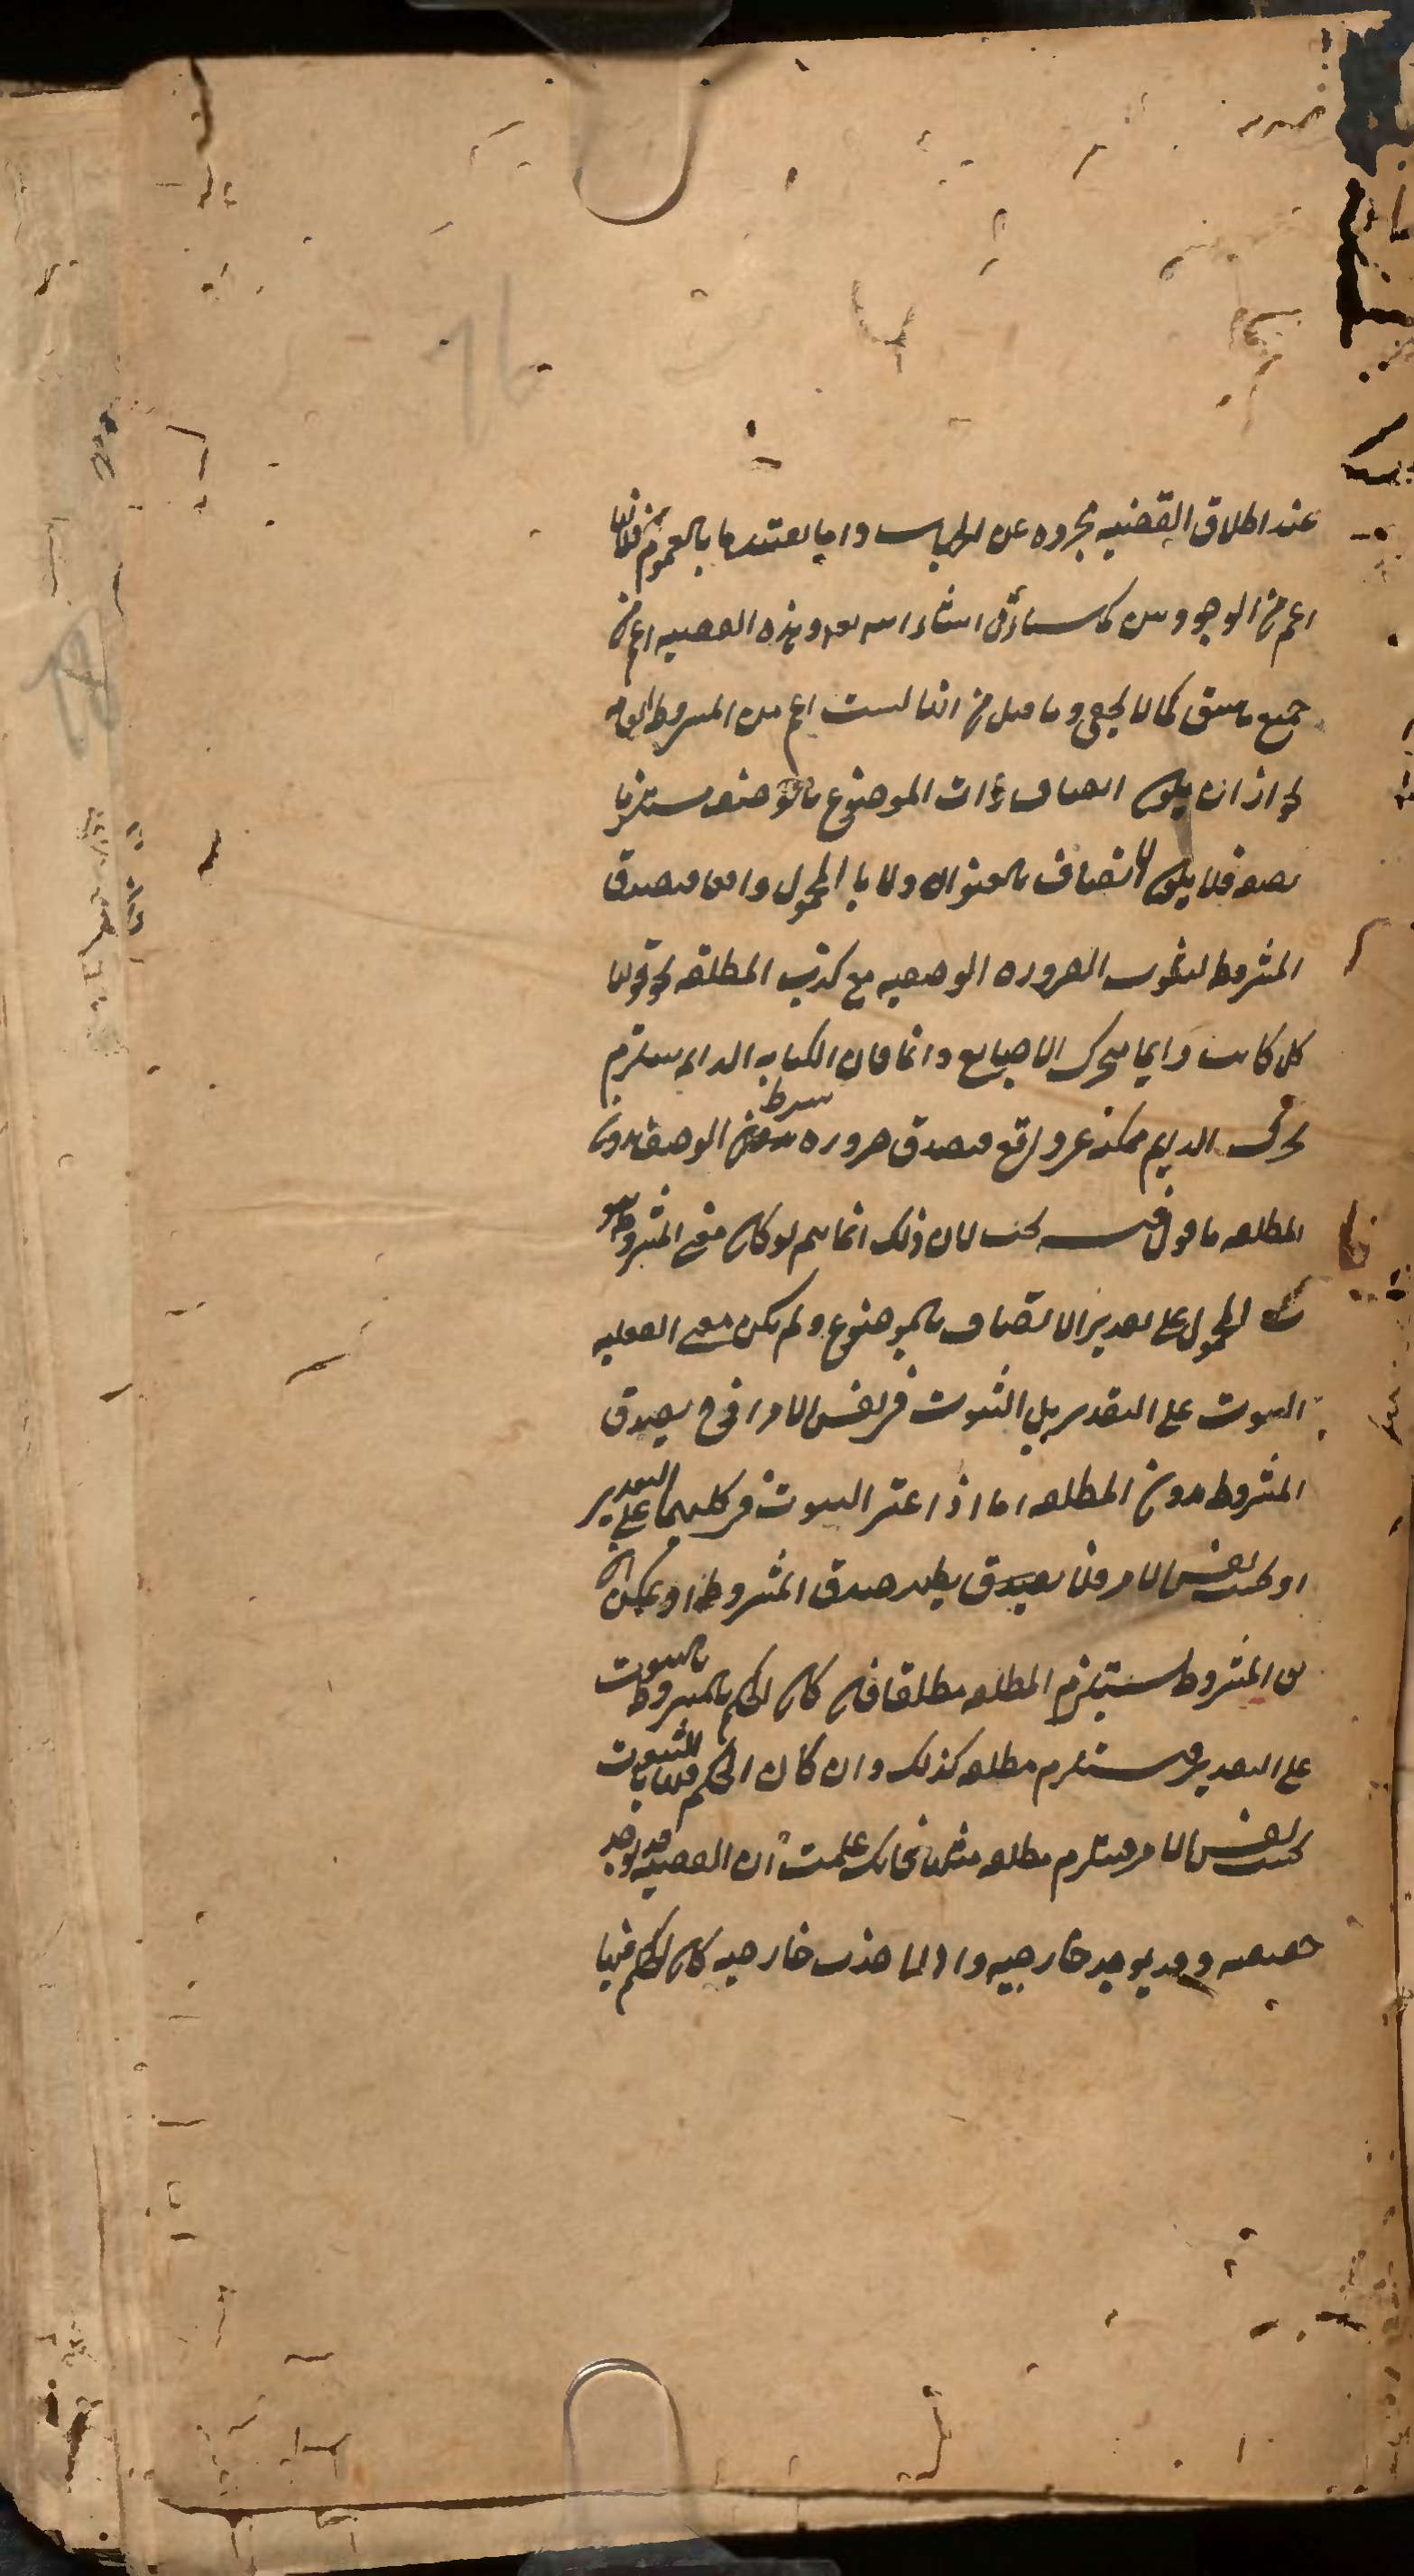 عند اطلاق القضيه مجروه عن الجهات واما بالعموم فلانها
اعم من الوجودىىن كما سىاتى انشاء الله تعه وهذه القضيه اعم من
جميع ما سبق كما لا يخفى وما قيل من انها ليست اعم من المشروط العامه
لجواز ان يكون اتصاف ذات الموضوع بالوصف مستلزما
فلا يكون الاتصاف بالعنوان ولا با المحمول واقعا فيصدق
المشروط لثبوت الضروره الوصفيه مع كذب المطلقه نحو قولنا
كل كاتب دايما متحرك الاصابع دائما فان الكتابه الدايم يستلزم
تحرك الدايم ممكن غير واقع فيصدق ضروره شرط الوصف بدون
المطلقه ما قول فيه بحث لان ذلك انما يتم لو كان معنى المشروط ثبوت
المحمول على تقدير الاتصاف بالموضوع ولم يكن معنى الفعليه
الثبوت على التقدير بل الثبوت فى نفس الامر اذ ح يصدق
المشروط بدون المطلقه اما اذا اعتبر الثبوت فى كليهما على التقدير
او بحسب نفس الامر فلا يصدق صدق المشروط او يمكن ان
المشروط يستلزم المطلقه مطلقا فان كان الحكم بالمشروط بالثبوت
على التقدير فيستلزم مطلقه كذلك وان كان الحكم فيها بالثبوت
بحسب نفس الامر فيستلزم مطلقه مثلها فانك علمت ان القضيه قد يوجد
حقيقيه وقد يوجد خارجيه واذا اخذت خارجيه كان الحكم فيها